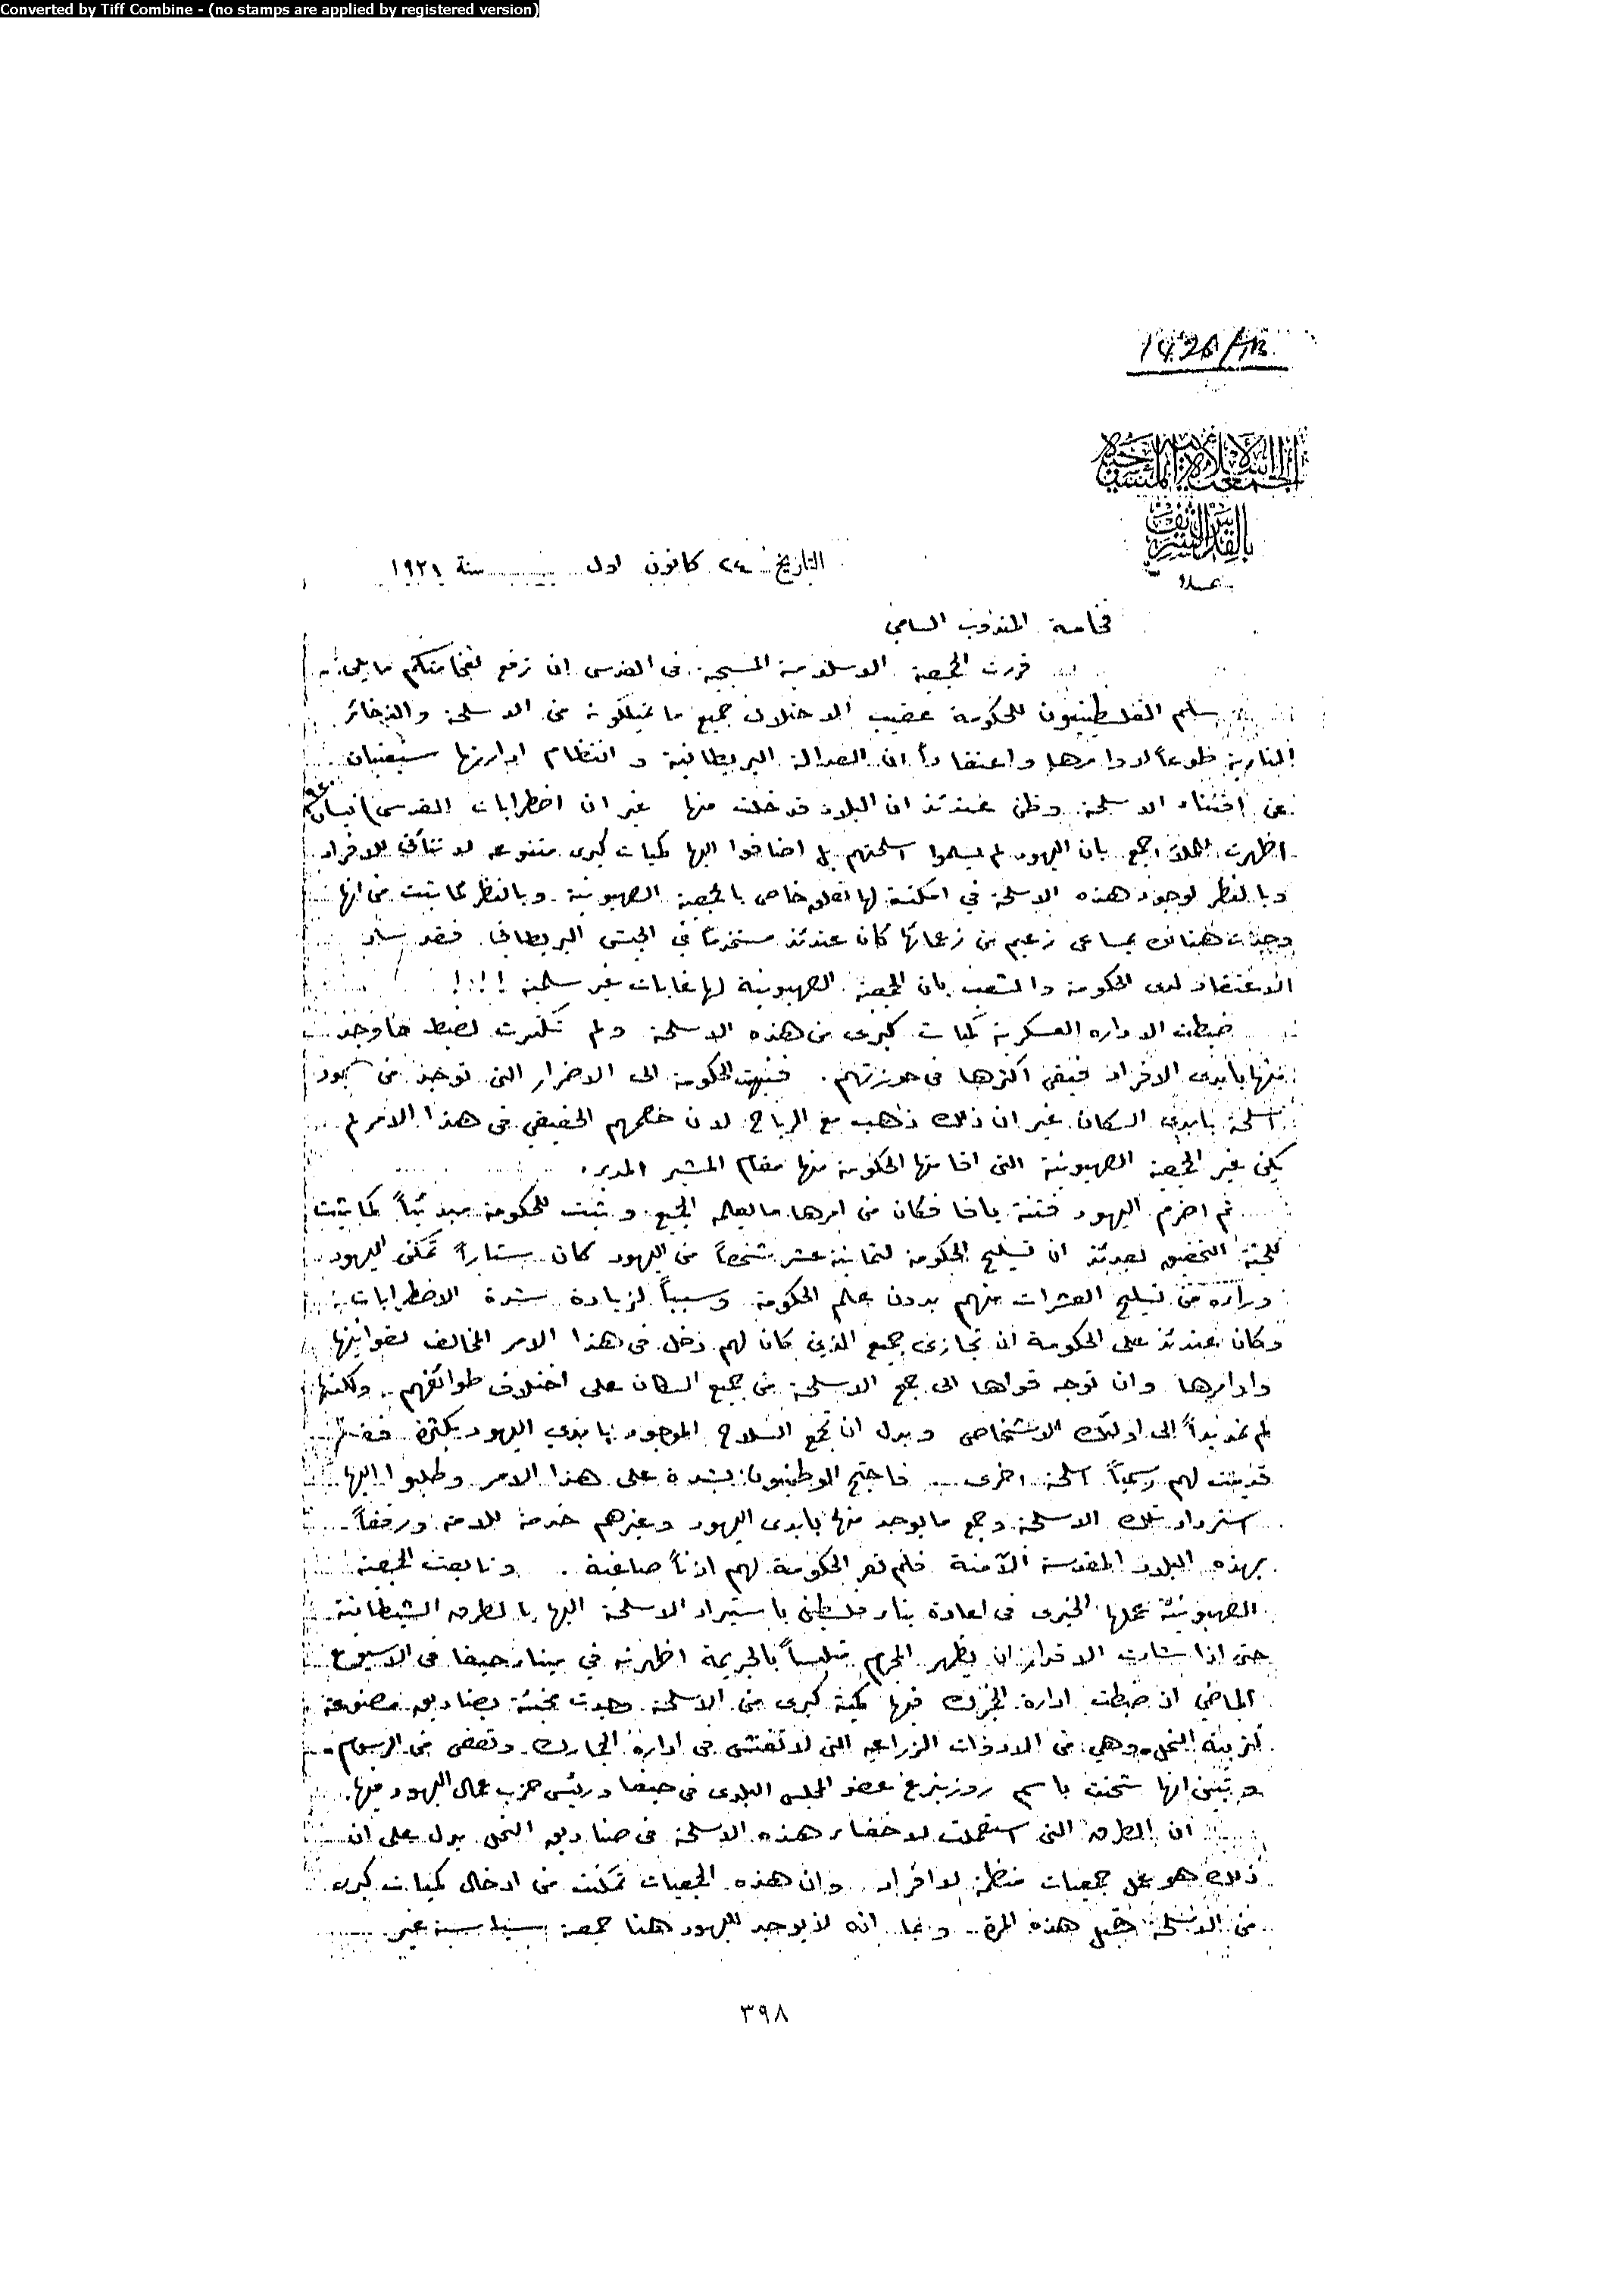 Converted by Tiff Combine - (no stamps are applied by registered version)
الجمعية الاسلامية المسيحية
بالقدس الشريف
التاريخ ٢٤ كانون اول سنة ١٩٢١
فخامة المندوب السامي
قررت الجمعية الاسلامية المسيحية في القدس ان ترفع لفخامتكم ما يلي :-
سلم الفلسطينيون للحكومة عقيب الاحتلال جميع ما يملكونه من الاسلحة والذخائر
النارية طوعاً لاوامرها واعتقاداً ان العدالة البريطانية وانتظام ادارتها سيغنيان
عن اقتناء الاسلحة وظن عندئذ ان البلاد قد خلت منها غير ان اضطرابات القدس نيسان
اظهرت للملأ اجمع بان اليهود لم يسلموا اسلحتهم بل اضافوا اليها كميات كبرى متنوعه لا تتأتى للافراد
وبالنظر لوجود هذه الاسلحة في امكنة لها تعلق خاص بالجمعية الصهيونية وبالنظر لما ثبت من انها
وجدت هناك بمساعي زعيم من زعمائها كان عندئذ مستخدماً في الجيش البريطاني فقد ساد
الاعتقاد لدى الحكومة والشعب بان الجمعية الصهيونية لها غايات غير سلمية !!!
ضبطت الاداره العسكرية كميات كبرى من هذه الاسلحة ولم تكترث لضبط ما وجد
منها بايدى الافراد فبقى اكثرها في حوزتهم . فنبهت الحكومة الى الاضرار التى توجد من وجود
اسلحة بايدي السكان غير ان ذلك ذهب مع الرياح لان خصمهم الحقيقي في هذا الامر لم
يكن غير الجمعية الصهيونية التى اقامتها الحكومة منها مقام المشير المدبر .
ثم اضرم اليهود فتنة يافا فكان من امرها ما يعلمه الجميع وثبت للحكومة مبدئياً كما ثبت
للجنة التحقيق بعدئذ ان تسليح الحكومة لثمانية عشر شخصاً من اليهود كان ستاراً تمكن اليهود
وراءه من تسليح العشرات منهم بدون علم الحكومة وسبباً لزيادة شدة الاضطرابات
وكان عندئذ على الحكومة ان تجازى جميع الذين كان لهم دخل في هذا الامر المخالف لقوانينها
واوامرها وان توجه قواها الى جمع الاسلحة من جميع السكان على اختلاف طوائفهم .. ولكنها
لم تمد يداً الى اولئك الاشخاص وبدل ان تجمع السلاح الموجود بايدي اليهود بكثرة فقد
قدمت لهم رسمياً اسلحة اخرى .. فاحتج الوطنيون بشدة على هذا الامر وطلبوا اليها
استرداد تلك الاسلحة وجمع ما يوجد منها بايدى اليهود وغيرهم خدمة للامة ورفقاً
بهذه البلاد المقدسة الآمنة فلم تعر الحكومة لهم اذناً صاغية . وتابعت الجمعية
الصهيونية عملها الخيرى في اعادة بناء فلسطين باستيراد الاسلحة اليها بالطرق الشيطانية
حتى اذا شاءت الاقدار ان يظهر المجرم متلبساً بالجريمة اظهرته في ميناء حيفا في الاسبوع
الماضي اذ ضبطت ادارة الجمرك فيها كمية كبرى من الاسلحة وجدت مخبئة بصناديق مصنوعة
لتربية النحل وهي من الادوات الزراعيه التى لا تفتش في ادارة الجمارك وتعفى من الرسوم
وتبين انها شحنت باسم روزنبرغ عضو المجلس البلدى في حيفا ورئيس حزب عمال اليهود فيها.
ان الطرق التى استعملت لاخفاء هذه الاسلحة في صناديق النحل يدل على ان
ذلك هو عمل جمعيات منظمة لا افراد وان هذه الجمعيات تمكنت من ادخال كميات كبرى
من الاسلحة قبل هذه المرة .. وبما انه لا يوجد لليهود هنا جمعية سياسية غير
٣٩٨